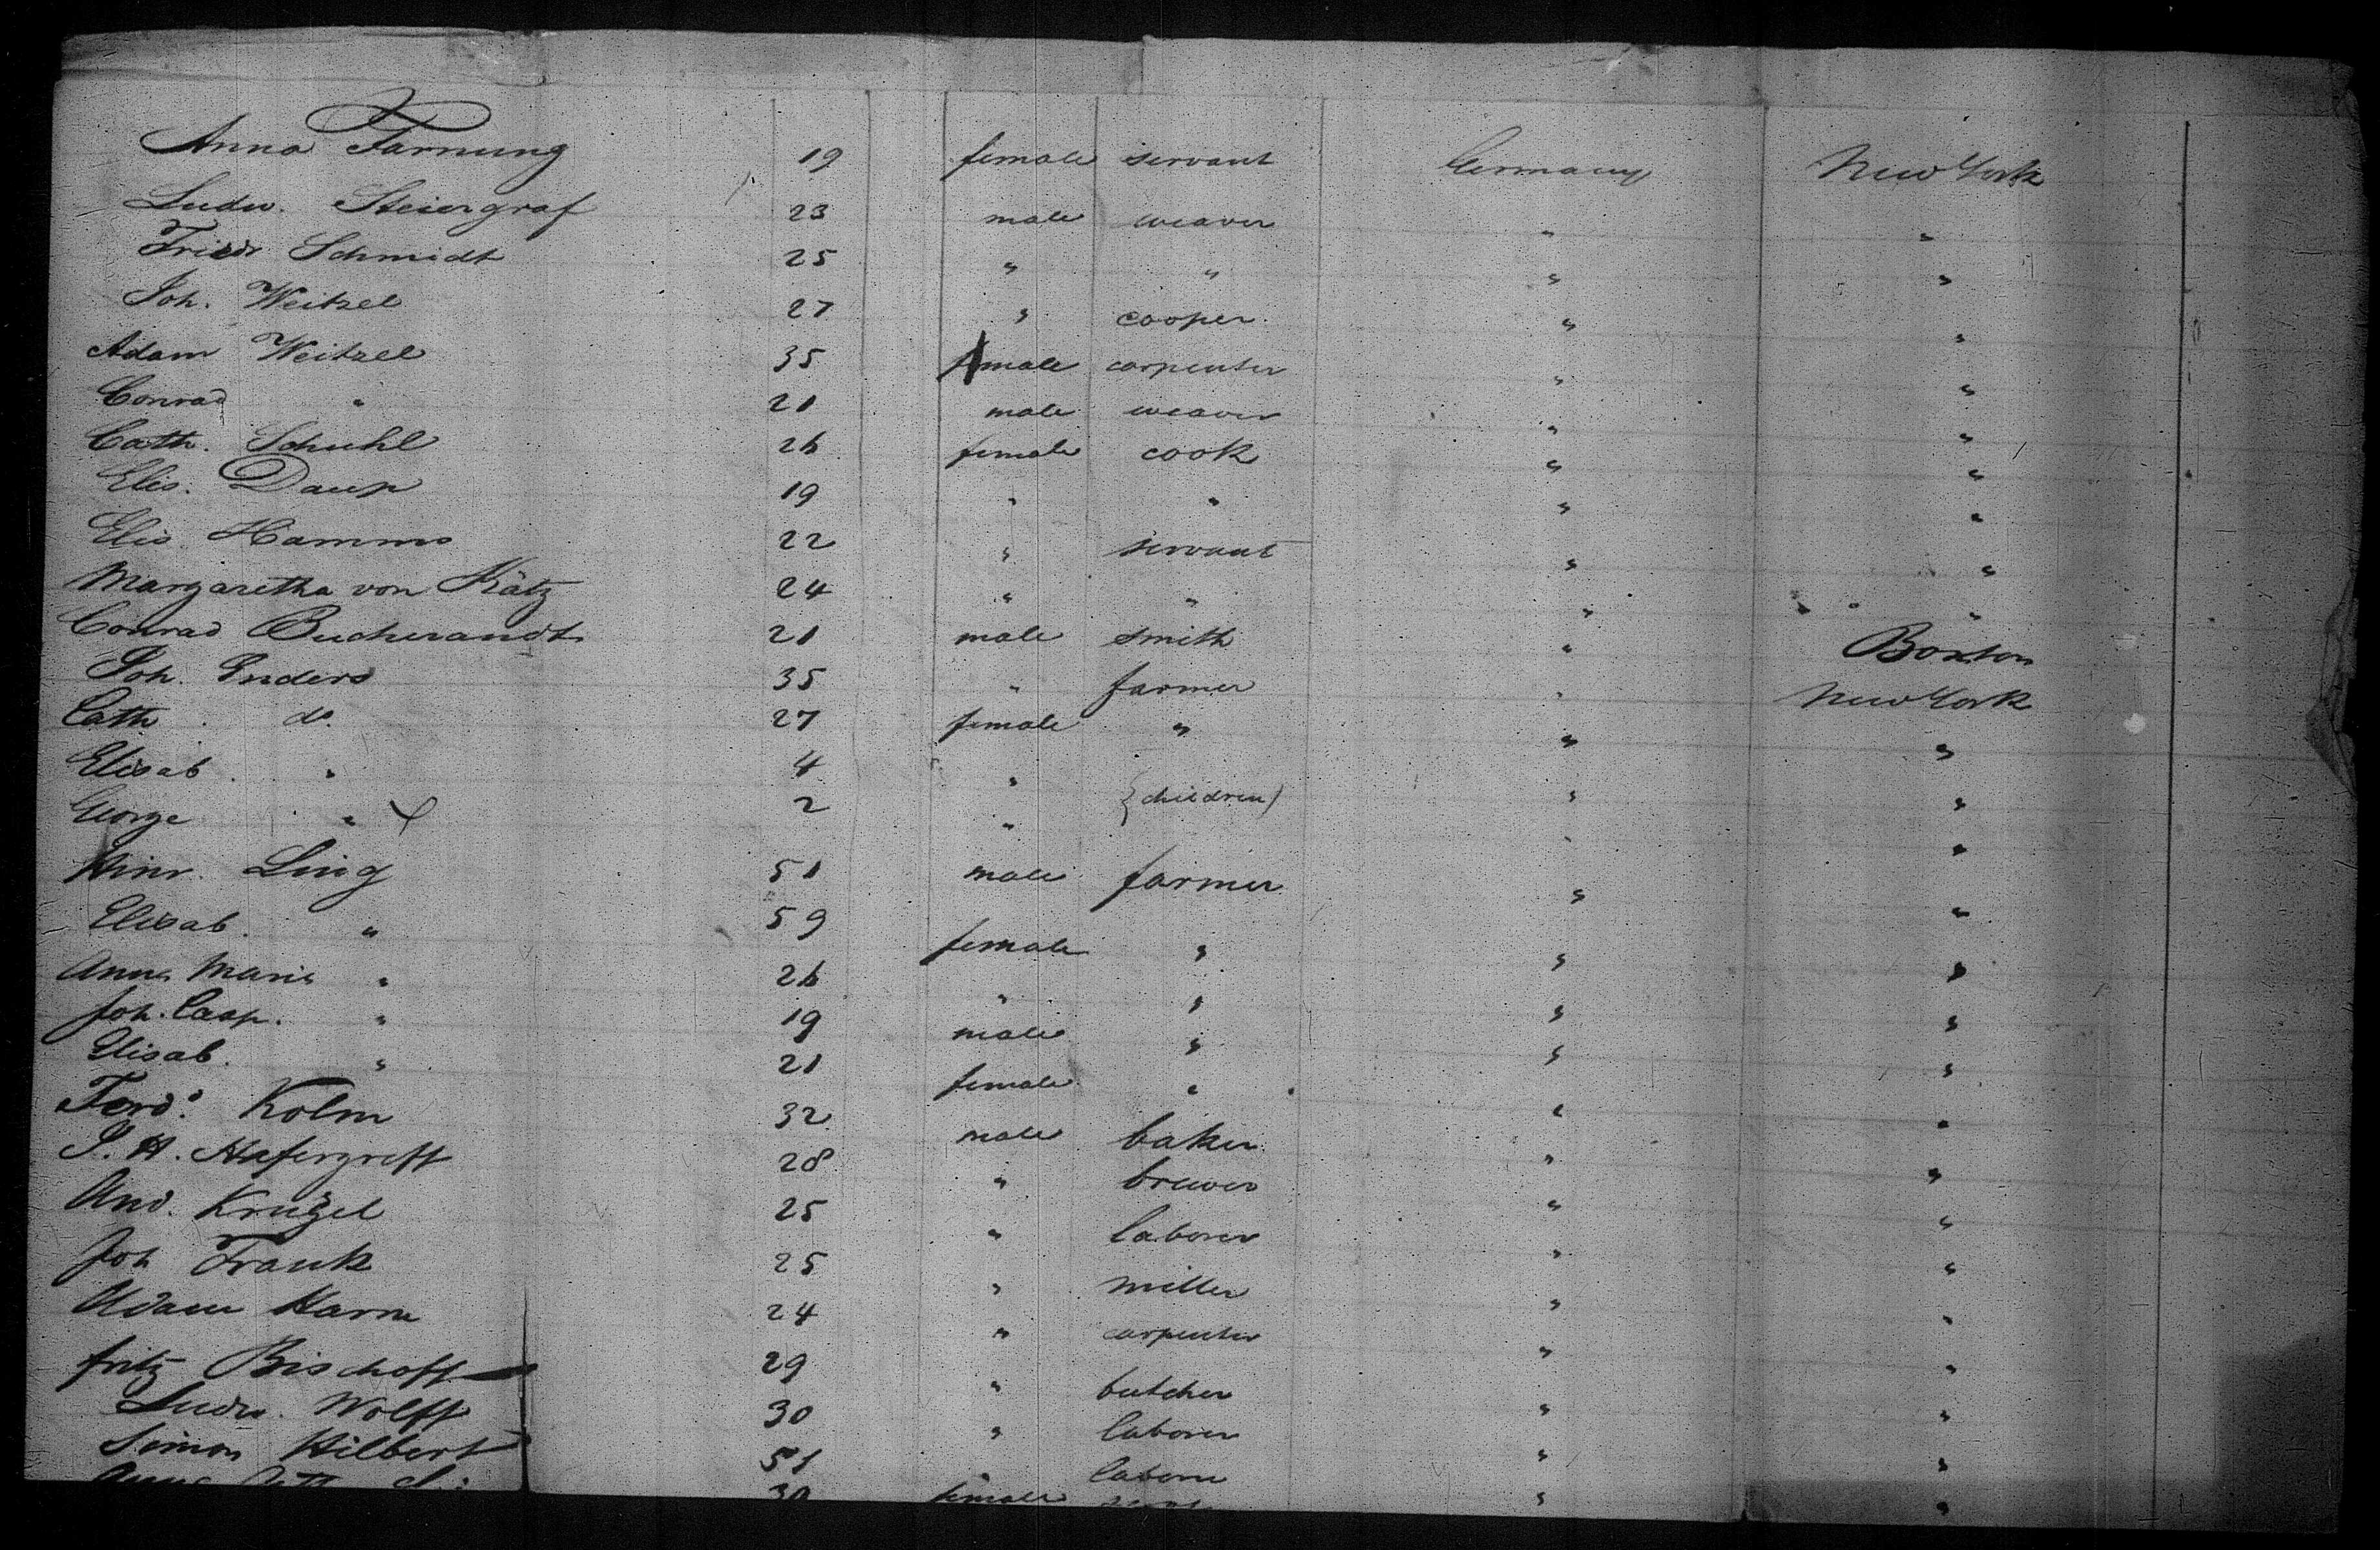 Anna Farnung 19 female servant Germany New York
Ludw. Steiergraf 23 male weaver " "
Friedr Schmidt 25 " " " "
Joh. Weitzel 27 " cooper " "
Adam Weitzel 35 male carpenter " "
Conrad " 21 male weaver " "
Cath. Schuhl 26 female cook " "
Elis. 19 " " " "
Elis. Hamms 22 " servant " "
Margaretha von Kätz 24 " " " "
Conrad 21 male smith " Boston
Joh. Enders 35 " farmer " New York
Cath. do. 27 female " " "
Elisab. " 4 " {children} " "
George " 2 " " "
Hinr. Ling 51 male farmer " "
Elisab. " 59 female " " "
Anna Maria " 26 " " " "
Joh. Casp. " 19 male " " "
Elisab. " 21 female " " "
Ferd. Kolm 32 male baker " "
J. H. 28 " brewer " "
And. Krügel 25 " laborer " "
Joh Frank 25 " miller " "
Adam 24 " carpenter " "
Fritz Bischoff 29 " butcher " "
Ludw. Wolff 30 " laborer " "
Simon Hilbert 51 " laborer " "
Anna 30 female " "